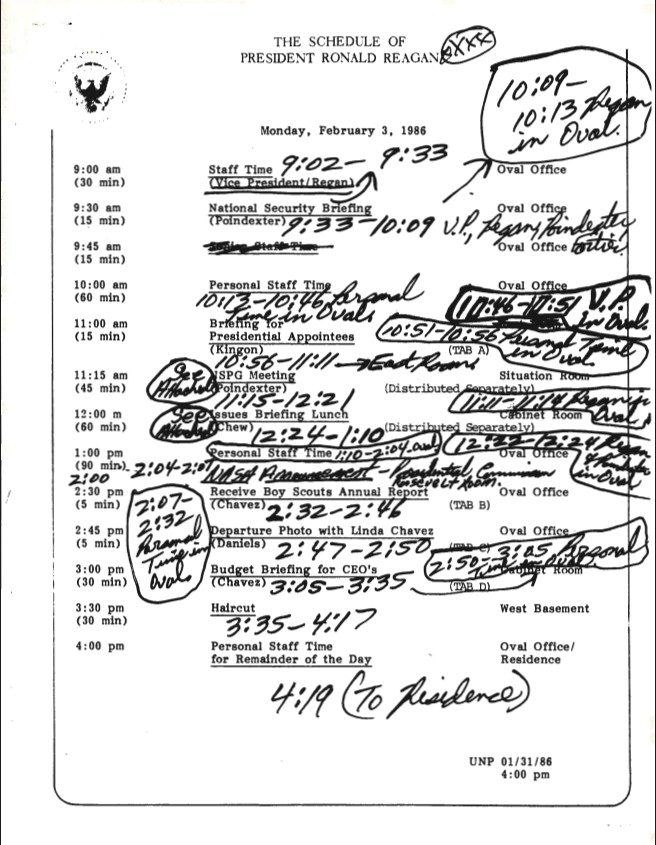 THE SCHEDULE OF
PRESIDENT RONALD REAGAN
XXXX
10:09–
10:13 Regan
in Oval.
Monday, February 3, 1986
9:00 am Staff Time 9:02–9:33 Oval Office
(30 min) (Vice President/Regan)
9:30 am National Security Briefing Oval Office
(15 min) (Poindexter) 9:33–10:09 V.P., Regan, Poindexter
9:45 am Oval Office
(15 min)
10:00 am Personal Staff Time Oval Office
(60 min) 10:13–10:46 Personal Time in Oval
10:46–10:51 V.P. in Oval.
11:00 am Briefing for
(15 min) Presidential Appointees 10:51–10:56 Personal Time in Oval
(Kingon) (TAB A)
10:56–11:11 → East Room
11:15 am See Attached NSPG Meeting Situation Room
(45 min) (Poindexter) (Distributed Separately)
11:15–12:21 11:11–11:14 Regan in Oval
12:00 m See Attached Issues Briefing Lunch Cabinet Room
(60 min) (Chew) (Distributed Separately)
12:24–1:10 12:22–12:24 Regan & Poindexter in Oval
1:00 pm Personal Staff Time 1:10–2:04 Oval Oval Office
(90 min)
2:00 2:04–2:07 NASA Announcement – Presidential Commission
Roosevelt Room.
2:30 pm Receive Boy Scouts Annual Report Oval Office
(5 min) (Chavez) 2:32–2:46 (TAB B)
2:07–
2:32
Personal
Time in
Oval
2:45 pm Departure Photo with Linda Chavez Oval Office
(5 min) (Daniels) 2:47–2:50 (TAB C)
2:50–3:05 Personal Time in Oval
3:00 pm Budget Briefing for CEO's Cabinet Room
(30 min) (Chavez) 3:05–3:35 (TAB D)
3:30 pm Haircut West Basement
(30 min) 3:35–4:17
4:00 pm Personal Staff Time Oval Office/
for Remainder of the Day Residence
4:19 (To Residence)
UNP 01/31/86
4:00 pm